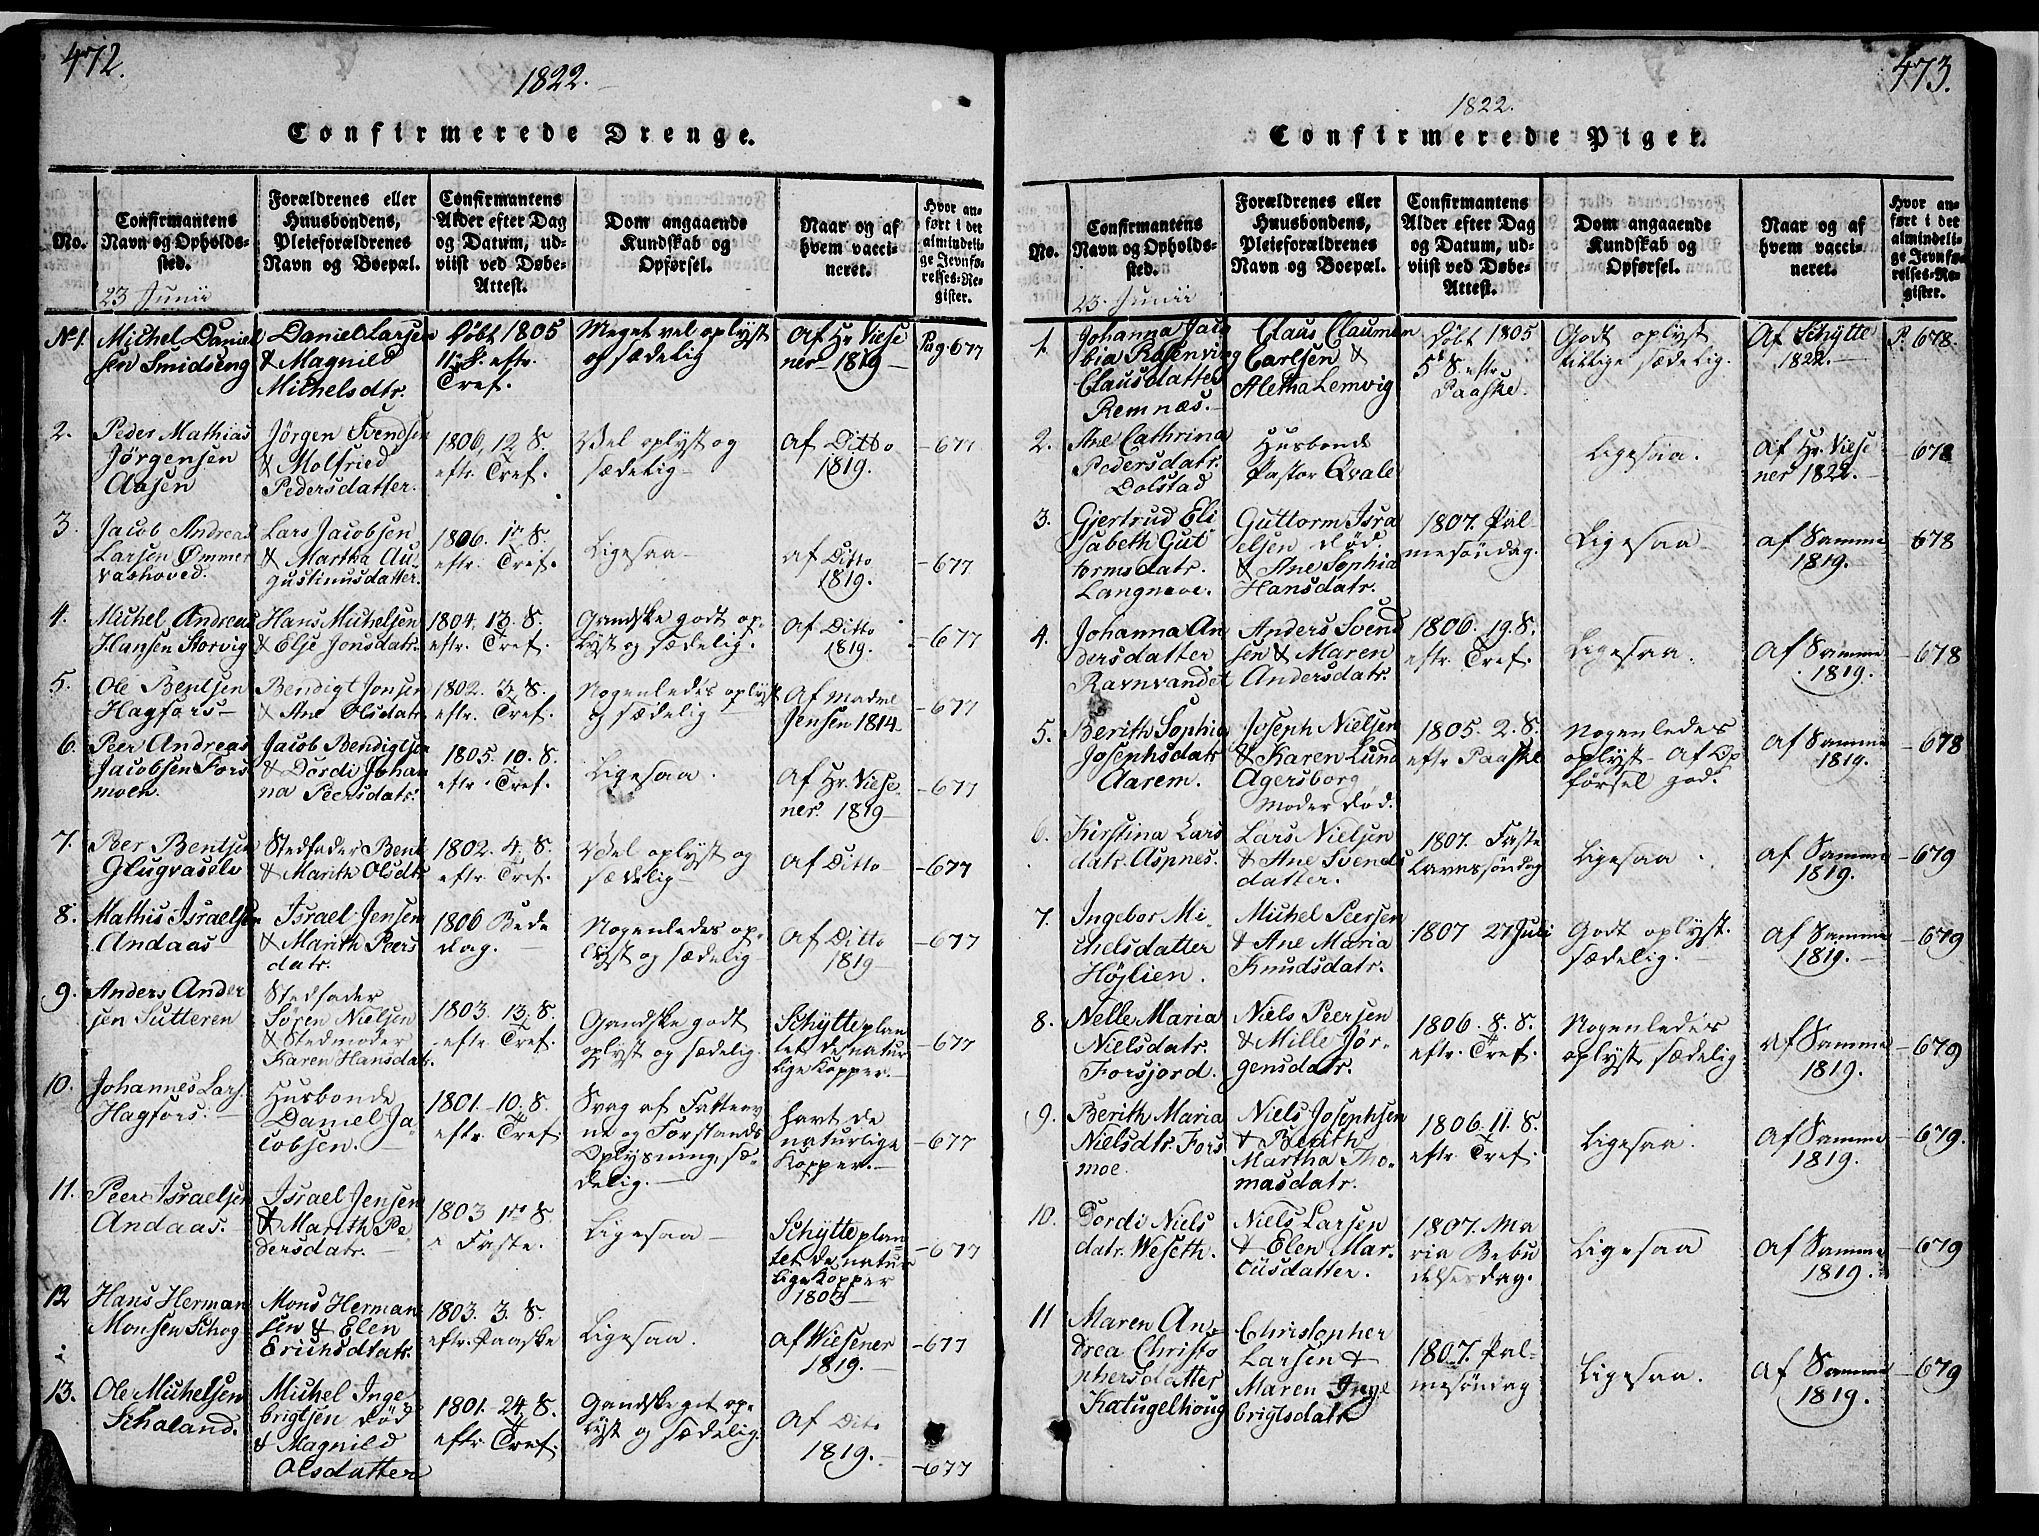 472.
1822.
Confirmerede Drenge.
No.
Confirmantens
Navn og Opholds-
sted.
Forældrenes eller
Huusbondens,
Pleieforældrenes
Navn og Boepæl.
Confirmantens
Alder efter Dag
og Datum, ud-
viist ved Døbe-
Attest.
Dom angaaende
Kundskab og
Opførsel.
Naar og af
hvem vacci-
neret.
Hvor an-
ført i det
almindeli-
ge Jevnfø-
relses-Re-
gister.
23 Junii
No 1.
Michel Daniel
sen Smidseng
Daniel Larsen
& Magnild
Michelsdtr.
Døbt 1805
11. S. eftr.
Tref.
Meget vel oplyst
og sædelig
Af Hr. Wiese
ner 1819
Pag. 677
2.
Peder Mathias
Jörgensen
Aasen
Jörgen Svendsen
& Molfried
Pedersdatter.
1806, 12. S.
eftr. Tref.
Vel oplyst og
sædelig
Af Ditto
1819.
-677
3.
Jacob Andreas
Larsen Ømmer
vashoved.
Lars Jacobsen
& Martha Au-
gustinusdatter.
1806. 17. S.
eftr. Tref.
Ligesaa
Af Ditto
1819.
-677
4.
Michel Andreas
Hansen Storvig
Hans Michelsen
& Else Jonsdatr.
1804. 13. S.
eftr. Tref.
Gandske godt op-
lyst og sædelig.
Af Ditto
1819.
-677
5.
Ole Bentsen
Hagfors
Bendigt Jonsen
& Ane Olsdatr.
1802. 3. S.
eftr. Tref.
Nogenledes oplyst
og sædelig
Af Madme
Jensen 1814
-677
6.
Peer Andreas
Jacobsen Fors
moen.
Jacob Bendigtsen
& Dordi Johan
na Peersdatr.
1805. 10. S.
eftr. Tref.
Ligesaa.
Af Hr. Wiese
ner. 1819
-677
7.
Peer Bentsen
Glugvaselv
Stedfader Bent
& Marith Olsdtr
1802. 4. S.
eftr. Tref.
Vel oplyst og
sædelig
Af Ditto
-677
8.
Mathis Israelsen
Andaas
Israel Jensen
& Marith Peers
datr.
1806 Bede
dag.
Nogenledes op-
lyst og sædelig
Af Ditto
1819
-677
9.
Anders Ander
sen Sutteren
Stedfader
Sören Nielsen
& Stedmoder
Karen Hansdatr.
1803. 13. S.
eftr. Tref.
Gandske godt
oplyst og sædelig.
Schytte plan
tet de natur
lige Kopper.
-677
10.
Johannes Lars.
Hagfors.
Husbonde
Daniel Ja-
cobsen.
1801. 10. S.
eftr. Tref.
Svag af Fattenv
ne og Forstands
Oplysning, sæ-
delig.
havt de
naturlige
Kopper.
-677
11.
Peer Israelsen
Andaas.
Israel Jensen
& Marith Pe-
dersdatr.
1803 1ste S.
i Faste.
Ligesaa
Schytte plan-
tet de natur
lige Kopper
1803
-677
12
Hans Herman
Monsen Schog
Mons Herman
sen & Elen
Erichsdtatr.
1803. 3. S.
eftr. Paaske
Ligesaa.
Af Wiesener
1819.
-677
13.
Ole Michelsen
Schaland.
Michel Inge
brigtsen død
& Magnild
Olsdatter
1801. 24. S.
eftr. Tref.
Gandske got op-
lyst og sædelig.
Af Dito
1819.
-677
473.
1822.
Confirmerede Piger.
No.
Confirmantens
Navn og Opholds-
sted.
Forældrenes eller
Huusbondens,
Pleieforældrenes
Navn og Boepæl.
Confirmantens
Alder efter Dag
og Datum, ud-
viist ved Døbe-
Attest.
Dom angaaende
Kundskab og
Opførsel.
Naar og af
hvem vacci-
neret.
Hvor an-
ført i det
almindeli-
ge Jevnfø-
relses-Re-
gister.
23. Junii
1.
Johanna Jaco
bia Rosenving
Clausdatter
Remnæs.
Claus Clausen
Carlsen &
Aletha Lemvig
Döbt 1805
5te S. eftr.
Paaske.
Godt oplyst
tillige sædelig.
Af Schytte
1822.
P. 678
2.
Ane Cathrina
Pedersdatr.
Dolstad
Husbond
Pastor Qvale
Ligesaa.
Af Hr. Wiese
ner 1822.
-678
3.
Gjertrud Eli
sabeth Gut
tormsdatr.
Langneve.
Guttorm Isra
elsen død
& Ane Sophia
Hansdatr.
1807. Pal-
mesøndag.
Ligesaa
af Samme
1819.
678
4.
Johanna An
dersdatter
Ravnvandet
Anders Svend
sen & Maren
Andersdatr.
1806. 19. S.
eftr. Tref.
Ligesaa.
Af Samme
1819.
-678
5.
Berith Sophia
Josephsdatr
Aarem.
Joseph Nielsen
& Karen Lund
Agersborg
Moder død.
1805. 2. S.
eftr Paaske
Nogenledes
oplyst af Op
førsel god.
Af Samme
1819.
-678
6.
Kirstina Lars
datr. Aspnes.
Lars Nielsen
& Ane Svends
datter.
1807. Faste
lavnssøndag
Ligesaa.
af Samme
1819.
-679
7.
Ingebor Mi-
chelsdatter
Höjlien.
Michel Peersen
& Ane Maria
Knudsdatr.
1807 27 Juli
Godt oplyst.
sædelig.
Af Samme
1819.
-679
8.
Nelle Maria
Nielsdatr.
Forsjord.
Niels Peersen
& Mille Jör-
gensdatr.
1806. 8. S.
eftr. Tref.
Nogenledes
oplyst, sædelig
Af Samme
1819.
-679
9.
Berith Maria
Nielsdtr. Fors
moe.
Niels Josephsen
& Berith
Martha Tho-
masdatr.
1806. 11. S.
eftr. Tref.
Ligesaa.
Af Samme
1819.
-679.
10.
Dordi Niels
datr. Weseth.
Niels Larsen
& Elen Mar-
cusdatter.
1807. Ma
ria Bebu
delsesdag.
Ligesaa
Af Samme
1819.
-679
11
Maren An-
drea Christo
phersdatter
Katugelhoug
Christopher
Larsen &
Maren Inge
brigtsdatr
1807. Pal-
mesøndag
Ligesaa.
Af Samme
1819.
-679